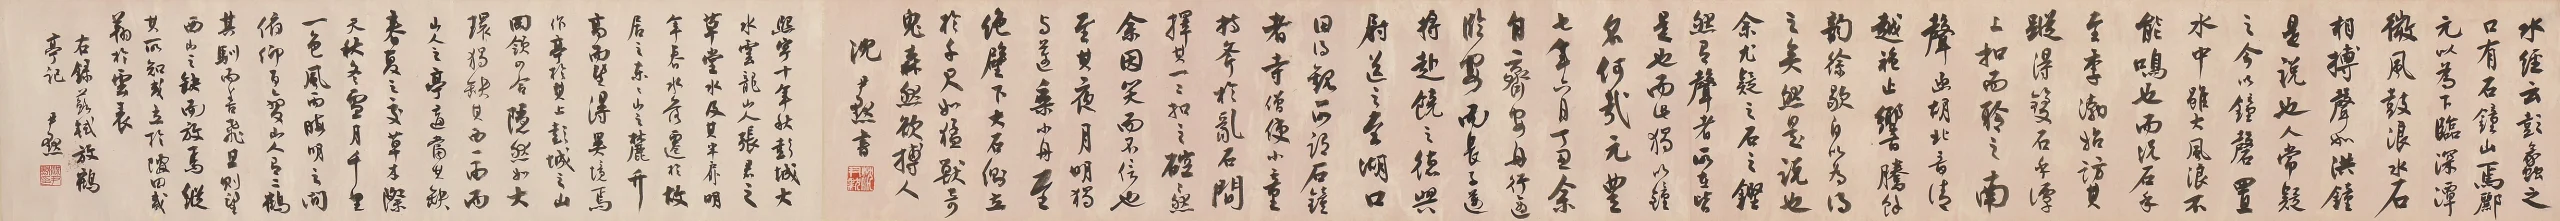 水經云彭蠡之
口有石鐘山焉酈
元以為下臨深潭
微風鼓浪水石
相搏聲如洪鐘
是說也人常疑
之今以鐘磬置
水中雖大風浪不
能鳴也而況石乎
至李渤始訪其
蹤得雙石於潭
上扣而聆之南
聲函胡北音清
越枹止響騰餘
韻徐歇自以為得
之矣然是說也
余尤疑之石之鏗
然有聲者所在皆
是也而此獨以鐘
名何哉元豐
七年六月丁丑余
自齊安舟行適
臨汝而長子邁
將赴饒之德興
尉送之至湖口
因得觀所謂石鐘
者寺僧使小童
持斧於亂石間
擇其一二扣之硿然
余因笑而不信也
至其夜月明獨
與邁乘小舟至
絕壁下大石側立
於千尺如猛獸奇
鬼森然欲搏人
沈尹默書
熙寧十年秋彭城大
水雲龍山人張君之
草堂水及其半扉明
年春水落遷於故
居之東東山之麓升
高而望得異境焉
作亭於其上彭城之山
岡嶺四合隱然如大
環獨缺其西一面而
山人之亭適當其缺
春夏之交草木際
天秋冬雪月千里
一色風雨晦明之間
俯仰百變山人有二鶴
甚馴而善飛旦則望
西山之缺而放焉縱
其所如或立於陂田或
翔於雲表
右錄蘇軾放鶴
亭記 尹默